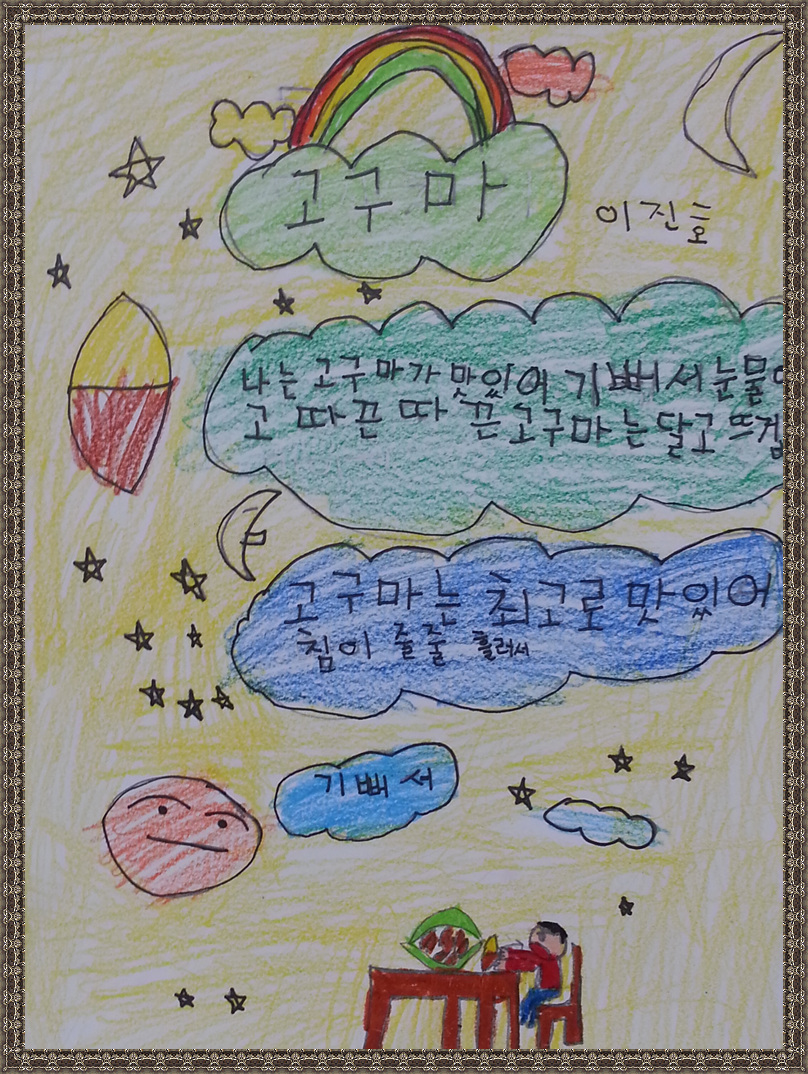 고구마
이진호
나는 고구마가 맛있어 기뻐서 눈물
고 따끈따끈 고구마는 달고 뜨겁
고구마는 최고로 맛있어
침이 줄줄 흘러서
기뻐서